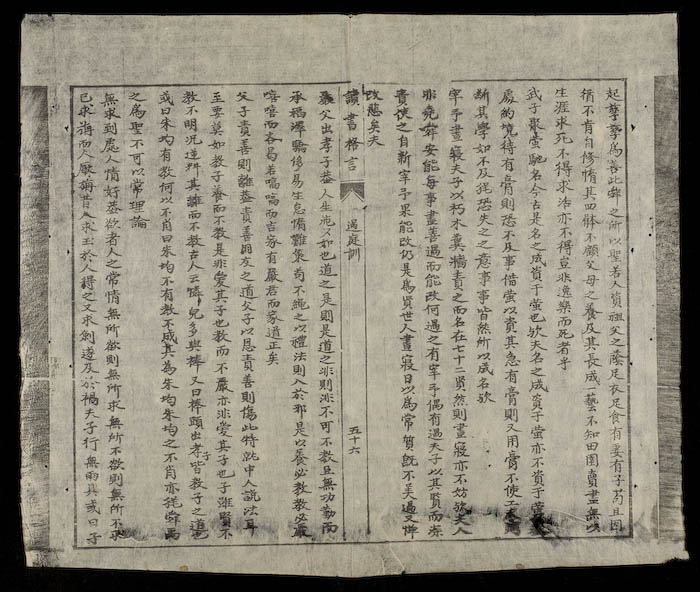 起孳孳爲善此舜之所以聖若人資祖父之蔭足衣足食有妻有子苟且因
循不肯自修惰其四肢不顧父母之養及其長成一藝不知田園賣盡無以
生涯求死不得求活亦不得豈非逸樂而死者乎
武子聚螢馳名今古是名之成資于螢也欤夫名之成資于螢亦不資于螢
處約境待有膏則恐不及事借螢以資其急有膏則又用膏不使工夫
斷其學如不及猶恐失之之意事事皆然所以成名欤
宰予晝寢夫子以朽木糞墻責之而名在七十二賢然則晝寢亦不妨欤夫人
非堯舜安能每事盡善過而能改何過之有宰予偶有過夫子以其賢而深
責使之自新宰予果能改仍是爲賢世人晝寢日以爲常質既不美過又憚
改悲矣夫
讀書格言
過庭訓
五十六
嚴父出孝子益人生
也道之是則是道之非則非不可不教且無功勤而
承福澤驕侈易生怠惰難集苟不純之以禮法則入於邪是以養必教教必嚴
嘻嘻而吝曷若嗃嗃而吉家有嚴君而家道正矣
父子責善則離蓋責善朋友之道父子以恩責善則傷此特就中人說法耳
至要莫如教子養而不教是非愛其子也教而不嚴亦非愛其子也子雖賢不
教不明況逆料其離而不教古人云憐兒多與棒又曰棒頭出孝子皆教子之道也
或曰朱均有教何以不肖曰朱均不有教不成其為朱均朱均之不肖亦猶舜禹
之爲聖不可以常理論
無求到處人情好蓋欲者人之常情無所欲則無所求無所不欲則無所不求
已求
而人厭
昔人求玉於人得之又求劍遂及於禍夫子行無雨具或曰子